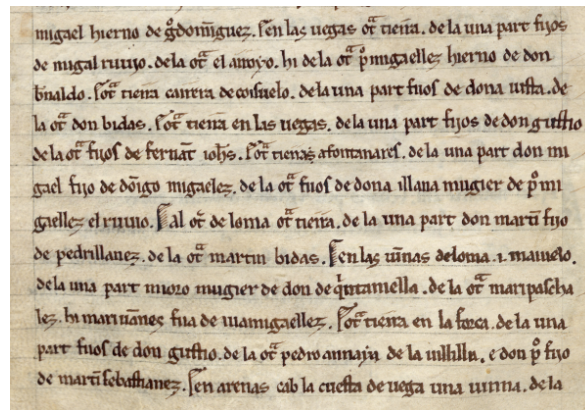 migael hierno de gᵒdomīguez. Γen las uegas otᵃ tierra. de la una part fijos
de migal ruuio. dela otᵃ el arroyo. hi de la otᵃ pᵒ migaellez hierno de don
bnaldo. Γotᵃ tierra carrera de consuelo. dela una part fijos de dona iusta. de
la otᵃ don bidas. Γotᵃ tierra en las uegas. dela una part fijos de don gustio
de la otᵃ fijos de fernāt iohs̄. Γotᵃ tierras afontanares. de la una part don mi
gael fijo de dōigo migaelez. de la otᵃ fijos de dona illana mugier de pᵒ mi
gaellez el ruuio. Γal otᵒ de loma otᵃ tierra. de la una part don martī fijo
de pedrillanez. de la otᵃ martin bidas. Γen las uīnas de loma. 1.
de la una part moro mugier de don de qⁱntaniella. de la otᵃ maripascha
lez. hi mariuānes fija de uiamigaellez. Γotᵃ tierra en la forca. de la una
part fijos de don gustio. de la otᵃ pedro annaya de la uilhilla. e don pᵒ fijo
de martī sebastianez. Γen arenas cab la cuesta de uega una uinna. de la